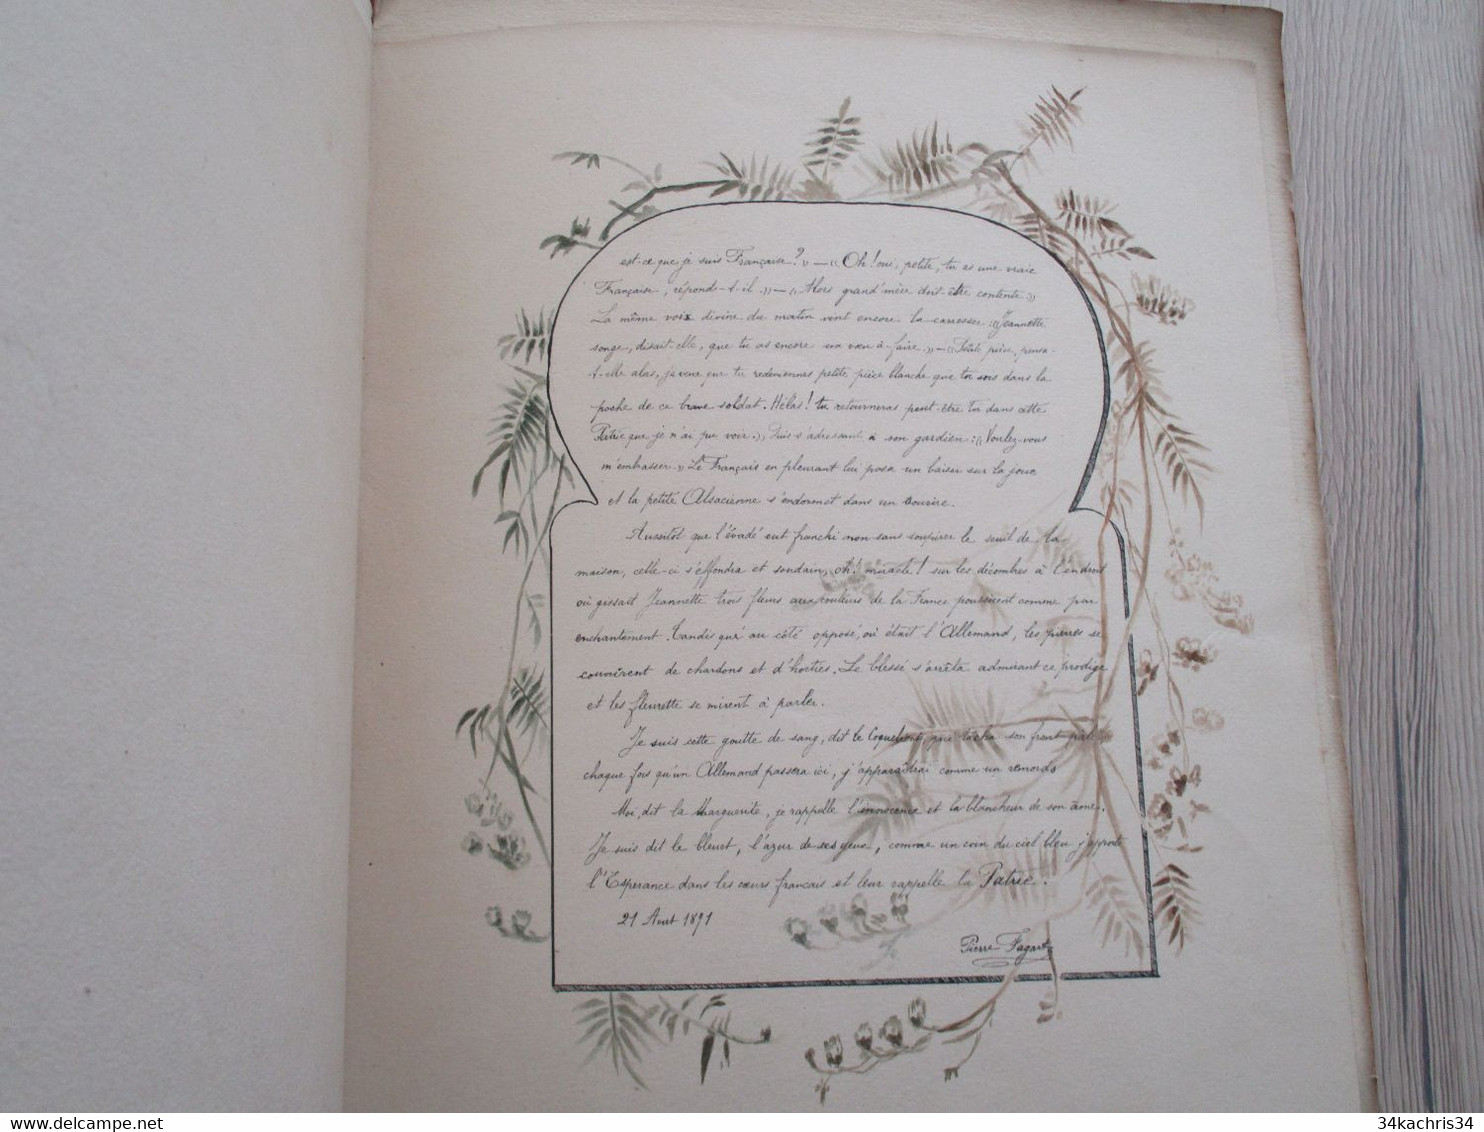 est-ce que je suis Française ? » — « Oh ! oui, petite, tu es une vraie
Française, répond-t-il. » — « Alors grand'mère doit être contente. »
La même voix divine du matin vint encore la carresser : « Jeannette
songe, disait-elle, que tu as encore un vœu à faire. » — « Petite pièce, pensa-
t-elle alas, je veux que tu redeviennes petite pièce blanche que tu sois dans la
poche de ce brave soldat. Hélas ! tu retourneras peut-être tu dans cette
Patrie que je n'ai pu voir. » Puis s'adressant à son gardien : « Voulez-vous
m'embrasser. » Le Français en pleurant lui posa un baiser sur la joue
et la petite Alsacienne s'endormet dans un sourire.
Aussitôt que l'évadé eut franchi non sans soupirer le seuil de la
maison, celle-ci s'effondra et soudain, oh ! miracle ! sur les décombres à l'endroit
où gissait Jeannette trois fleurs aux couleurs de la France poussèrent comme par
enchantement. Tandis qui au côté opposé, où était l'Allemand, les pierres se
couvrirent de chardons et d'horties. Le blessé s'arrêta admirant ce prodige
et les fleurette se mirent à parler.
Je suis cette goutte de sang, dit le Coquelicot, qui tacha son front pâle
chaque fois qu'un Allemand passera ici, j'apparaîtrai comme un remords
Moi, dit la Marguerite, je rappelle l'innocence et la blancheur de son âme.
Je suis dit le bleuet, l'azur de ses yeux, comme un coin du ciel bleu j'apporte
l'Esperance dans les cœurs français et leur rappelle la Patrie.
21 Aout 1891
Pierre Fagart
delcampe.net
34kachris34